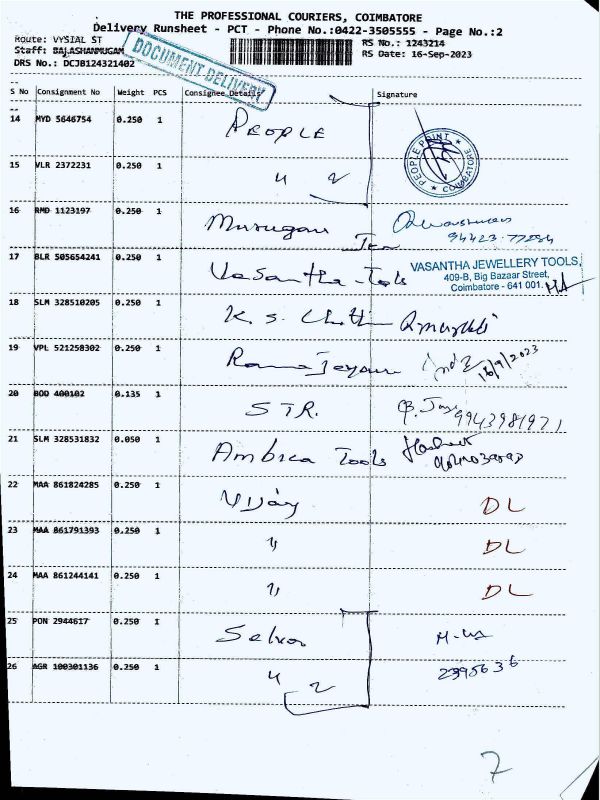 THE PROFESSIONAL COURIERS, COIMBATORE
Delivery Runsheet - PCT - Phone No.:0422-3505555 - Page No.:2
Route: VYSIAL ST RS No.: 1243214
Staff: BALASHANMUGAM RS Date: 16-Sep-2023
DRS No.: DCJB124321402
DOCUMENT DELIVERY
S No Consignment No Weight PCS Consignee Details Signature
14 MYD 5646754 0.250 1 PEOPLE
PEOPLE POINT COIMBATORE
15 VLR 2372231 0.250 1 " 2
16 RMD 1123197 0.250 1 Murugan
94423-77284
17 BLR 505654241 0.250 1 Vasantha Tools
VASANTHA JEWELLERY TOOLS,
409-B, Big Bazaar Street,
Coimbatore - 641 001.
18 SLM 328510205 0.250 1 K. S.
19 VPL 521258302 0.250 1 16/9/2023
20 BOD 400102 0.135 1 STR. 9943981971
21 SLM 328531832 0.050 1 Ambica Tools
22 MAA 861824285 0.250 1 Vijay DL
23 MAA 861791393 0.250 1 " DL
24 MAA 861244141 0.250 1 " DL
25 PON 2944617 0.250 1 Selva
26 AGR 100301136 0.250 1 " 2 2395636
7